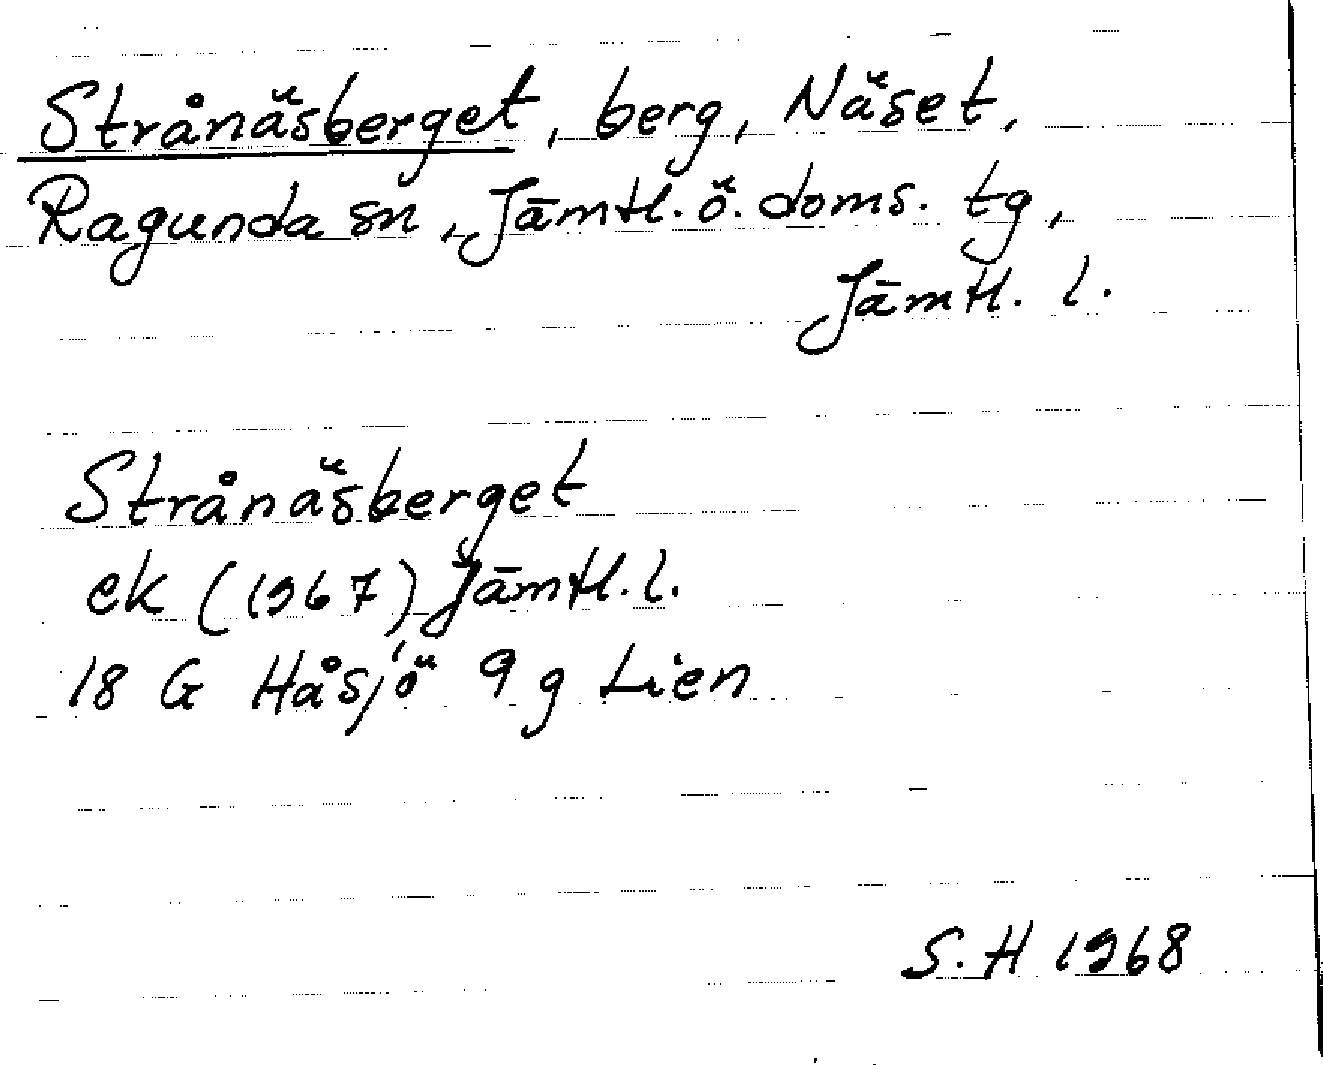 Strånäsberget, berg, Näset,
Ragunda sn, Jämtl. ö. doms. tg,
Jämtl. l.
Strånäsberget
ek (1967) Jämtl. l.
18 G Håsjö 9 g Lien
S. H 1968